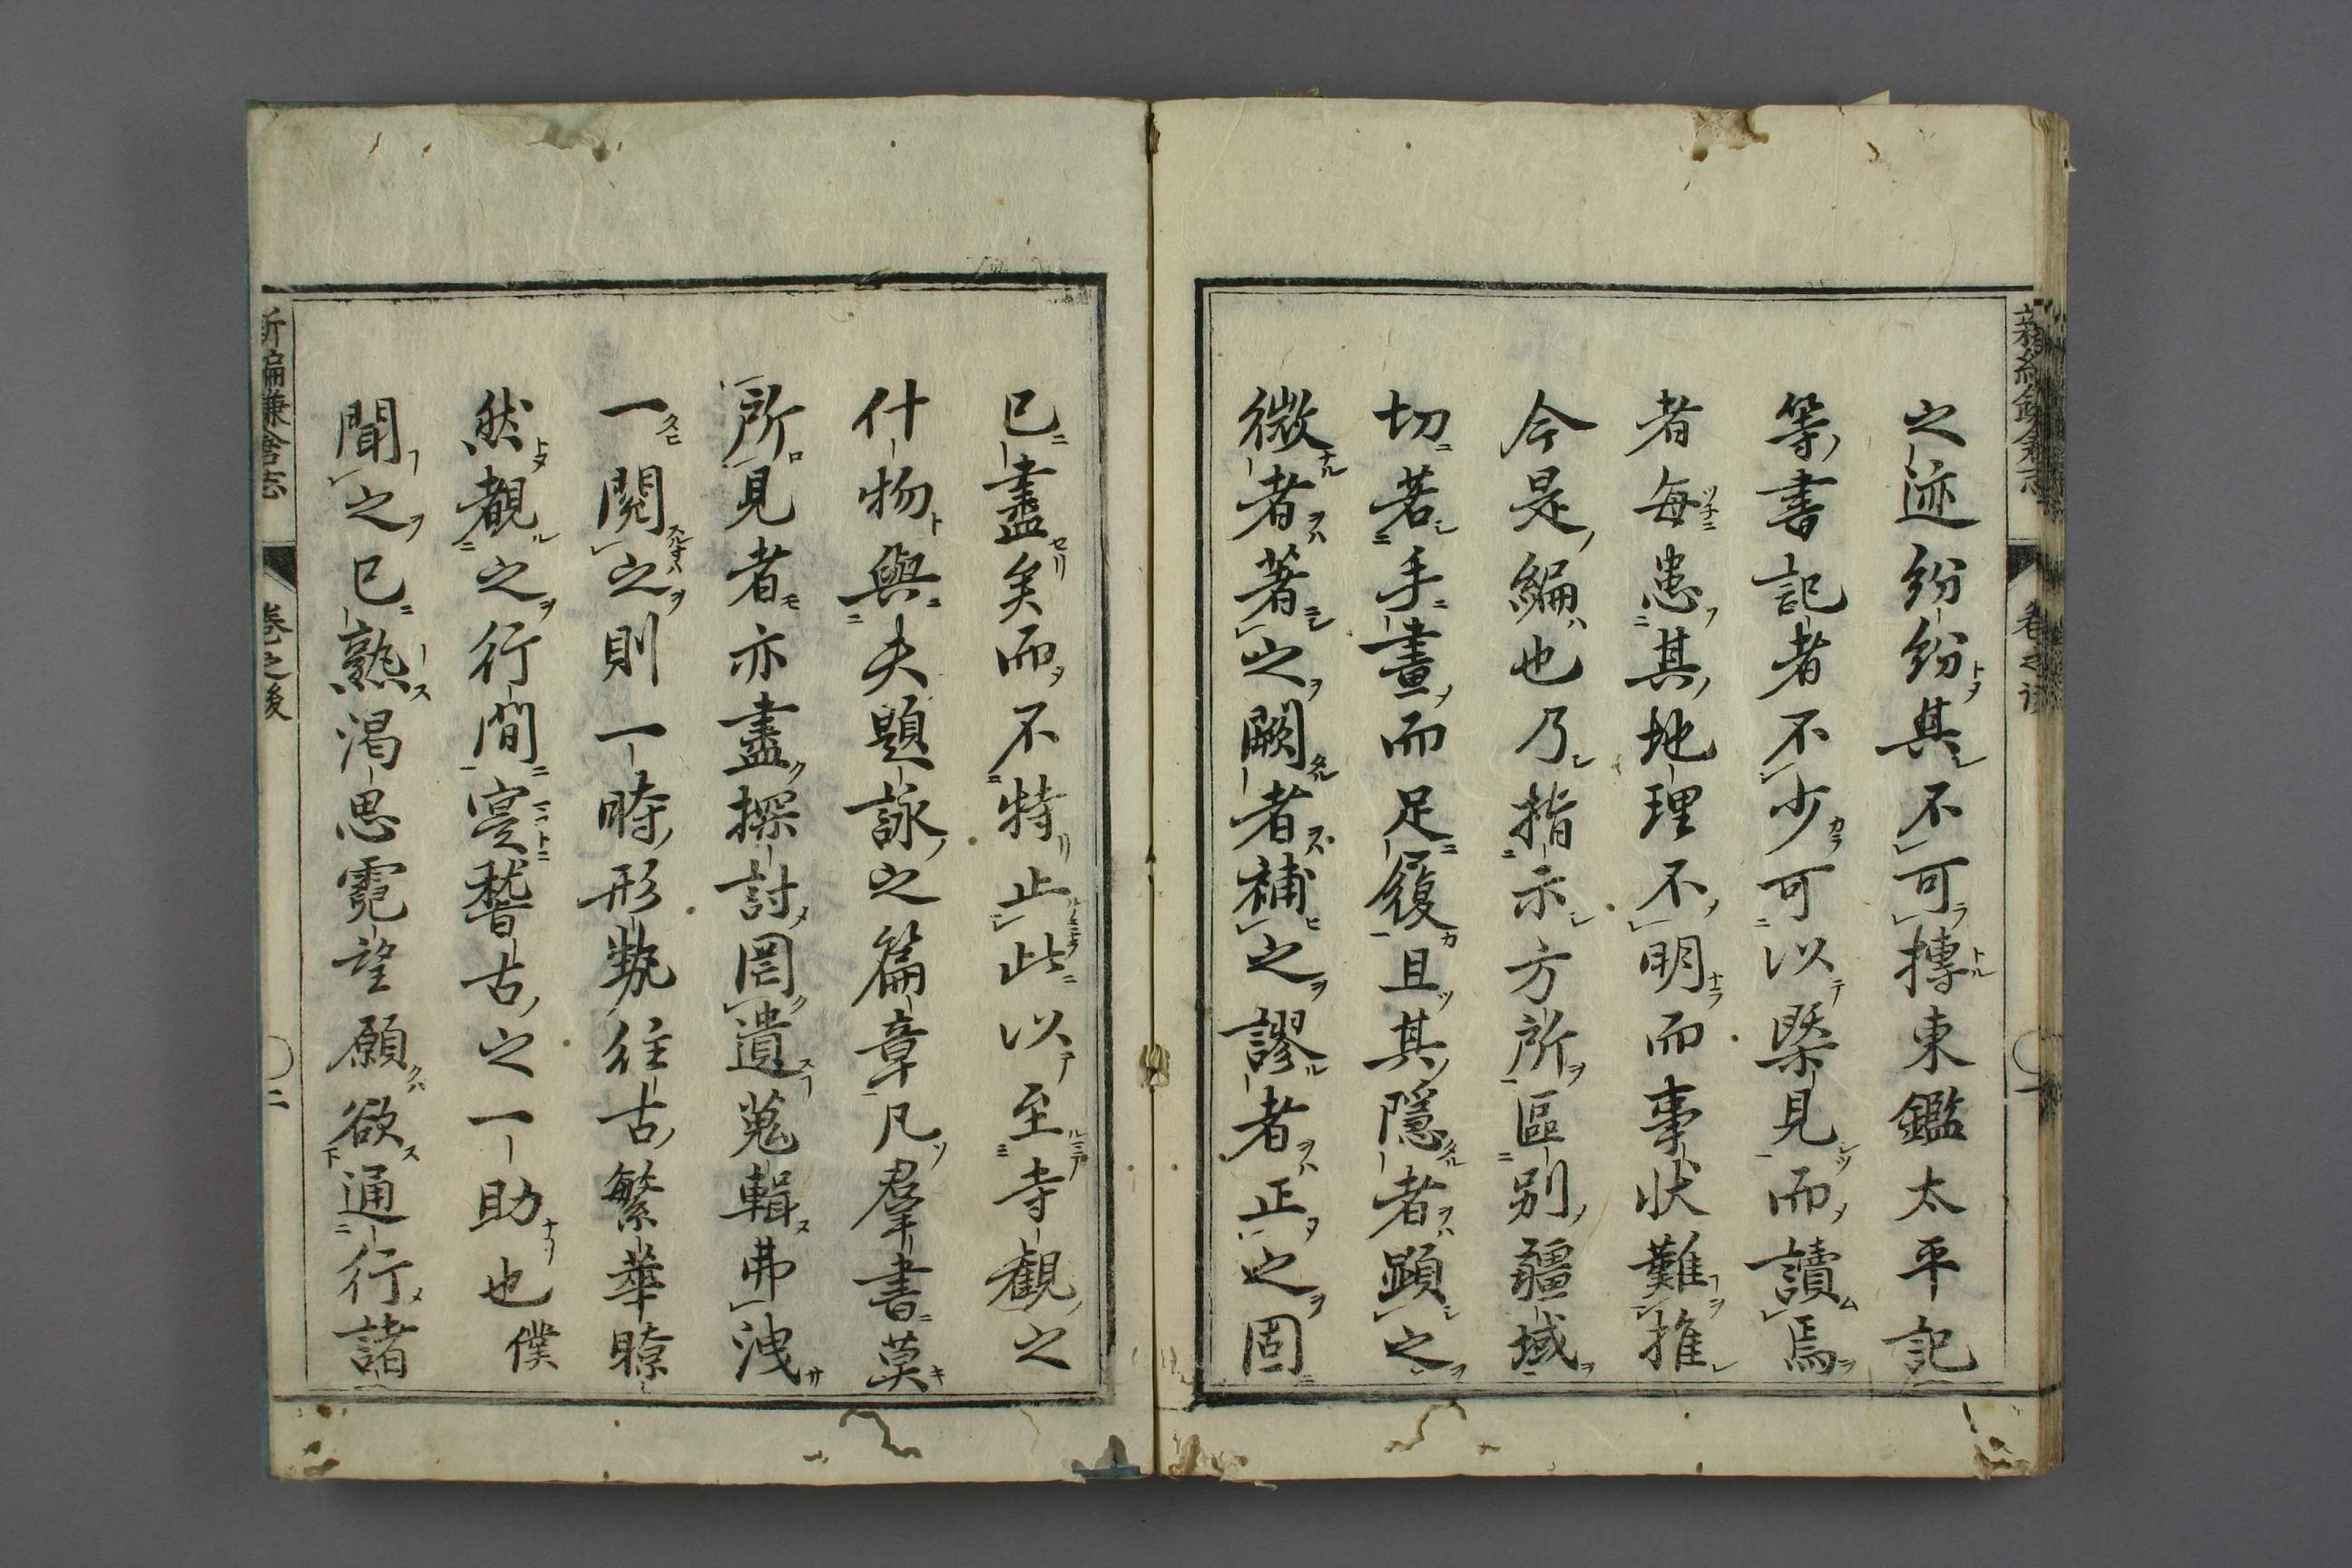 之迹紛紛其不可摶東鑑太平記
等書記者不少可以槩見而讀焉
者每患其地理不明而事状難推
今是編也乃指示方所區别疆域
切若手畫而足履且其隱者顕之
微者著之闕者補之謬者正之固
已盡矣而不特止此以至寺觀之
什物與夫題詠之篇章凡羣書莫
所見者亦盡探討罔遺蒐輯弗洩
一閱之則一時形勢徃古繁華瞭
然覩之行間寔稽古之一助也僕
聞之已熟渴思霓望願欲通行諸
新編鎌倉志
卷之後
二